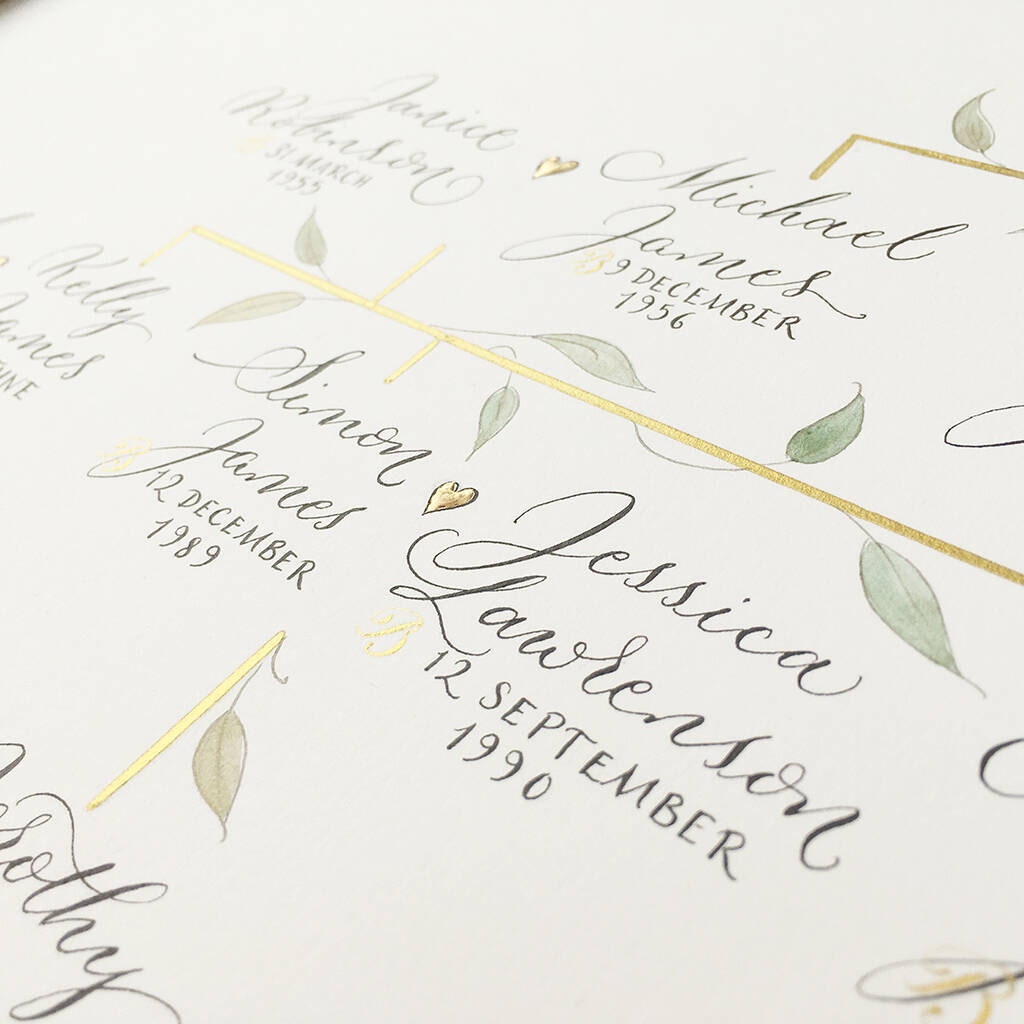 Janice
Robinson
B 31 MARCH
1955
Michael
James
B 9 DECEMBER
1956
Kelly
James
Simon
James
B 12 DECEMBER
1989
Jessica
Lawrenson
B 12 SEPTEMBER
1990
B